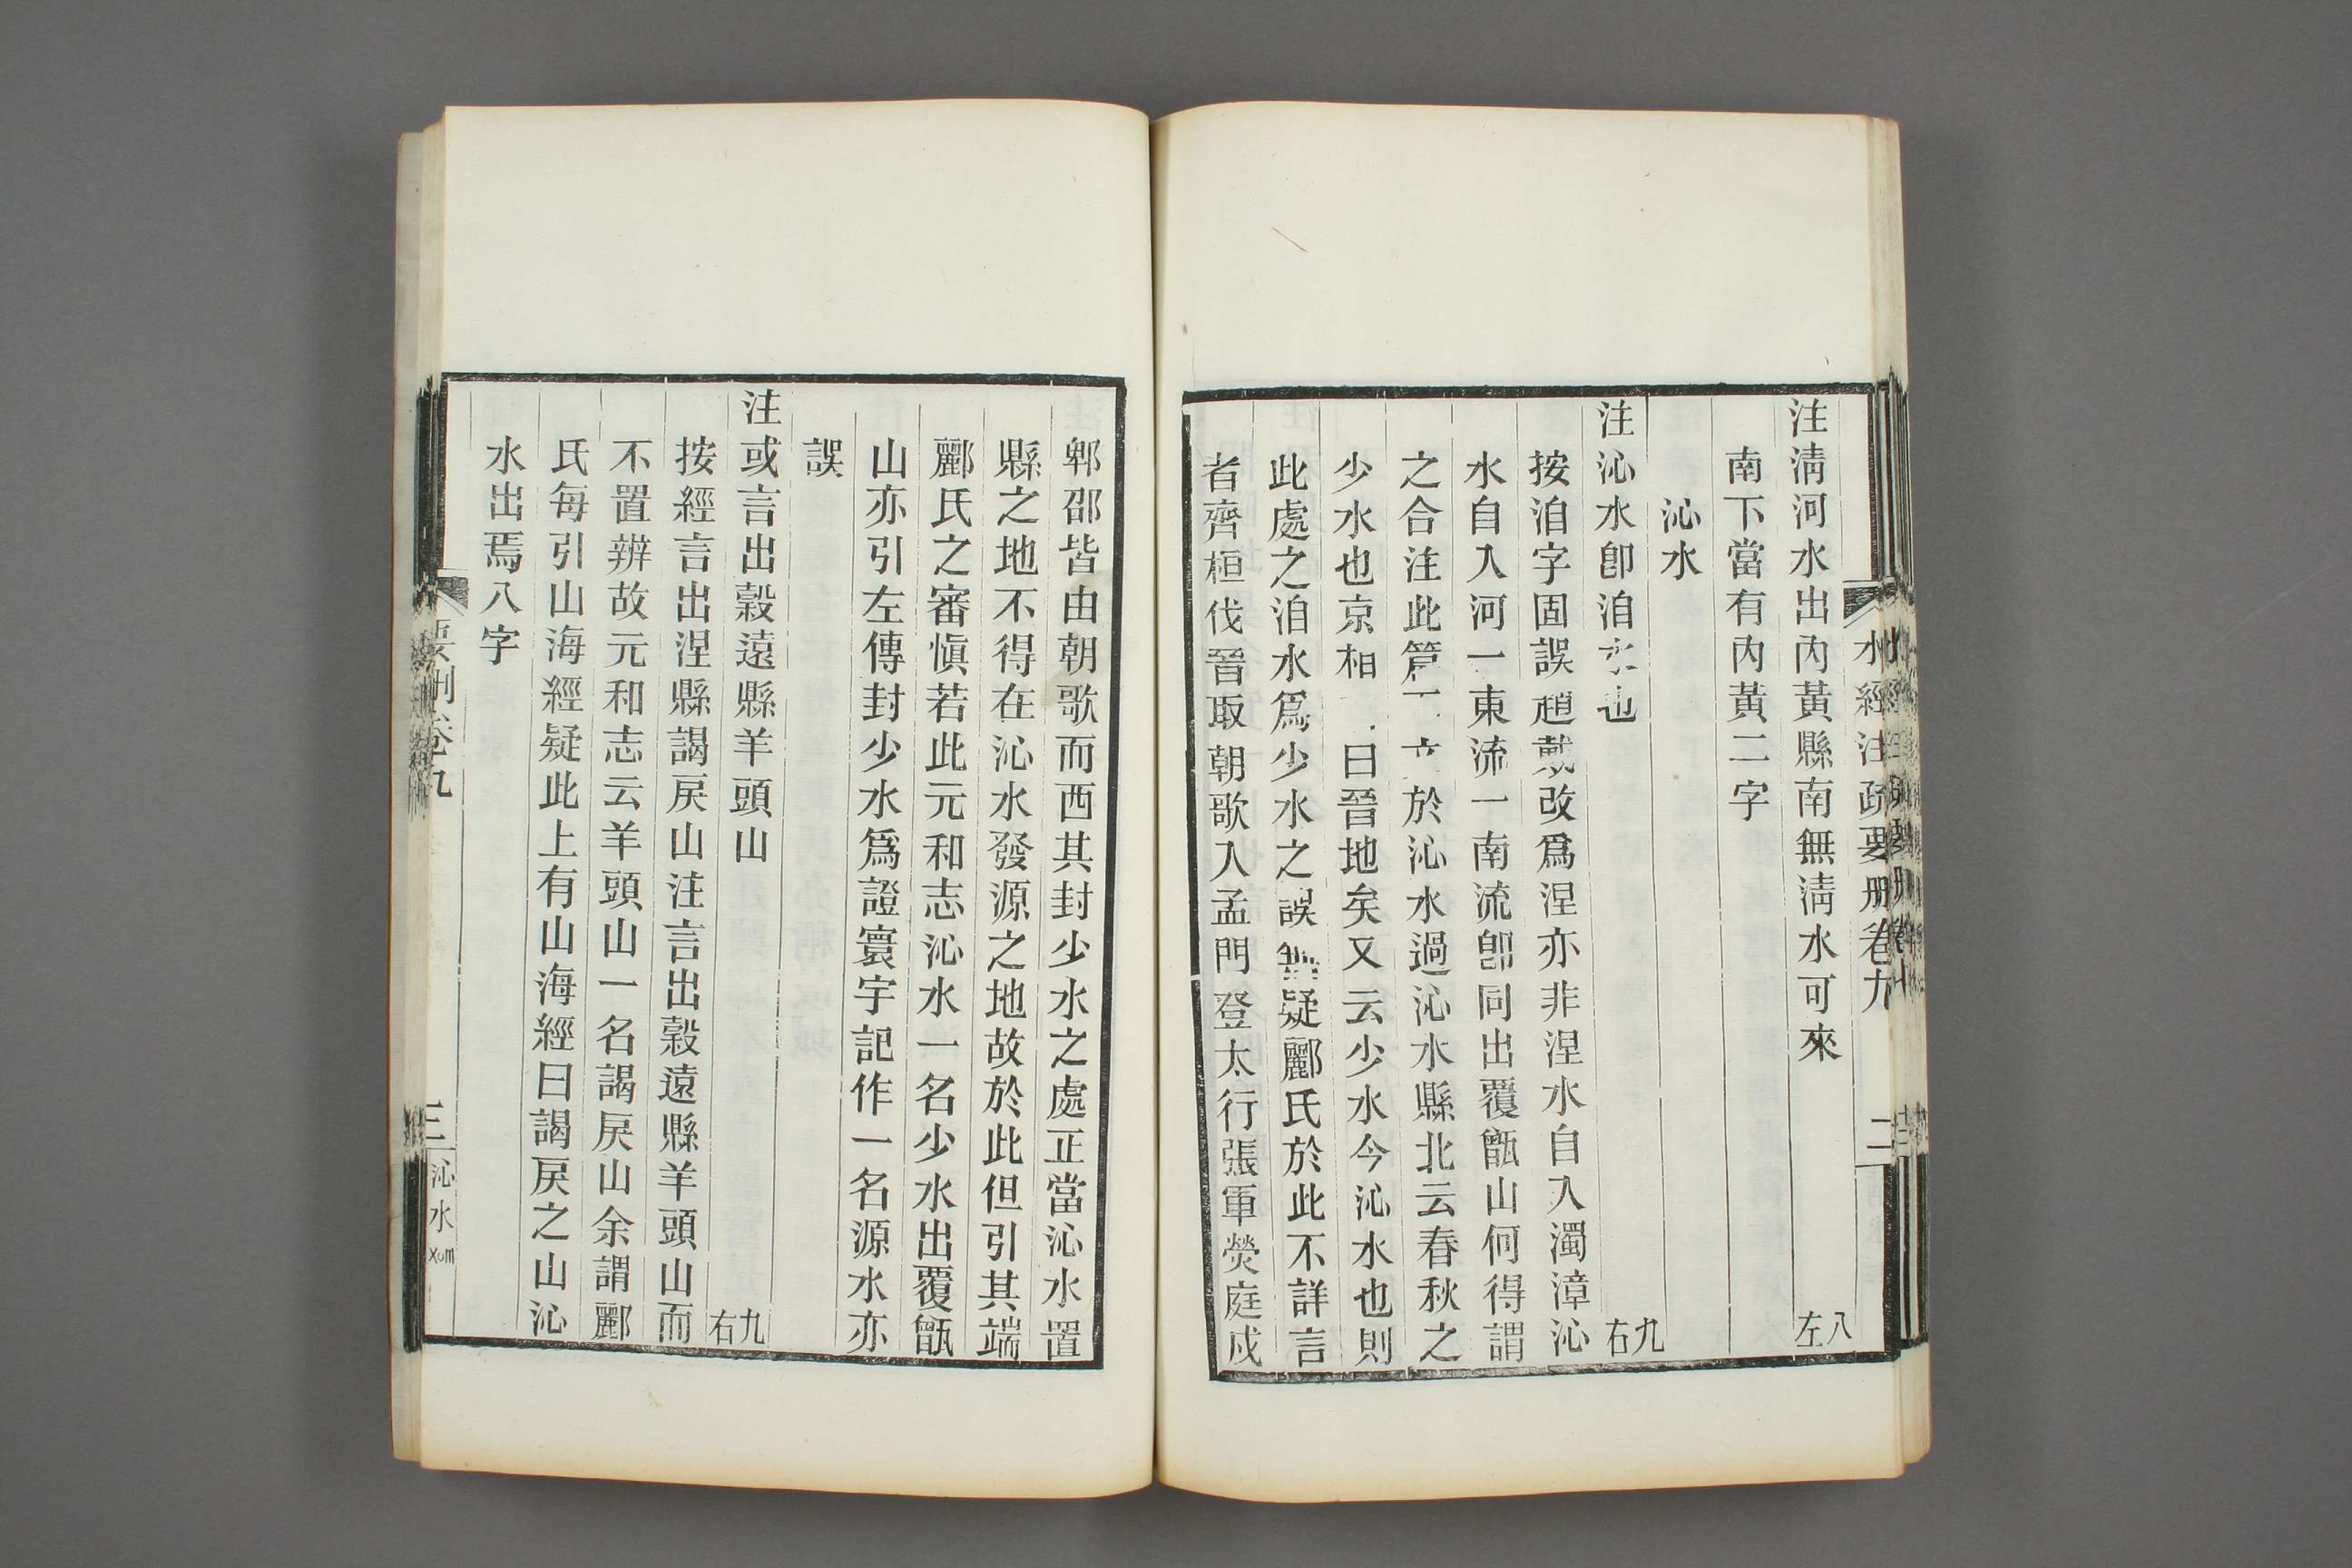 水經注疏要刪卷九
二
注淸河水出內黃縣南無淸水可來
八左
南下當有內黃二字
沁水
注沁水卽洎水也
九右
按洎字固誤趙戴改爲涅亦非涅水自入濁漳沁
水自入河一東流一南流卽同出覆甑山何得謂
之合注此於沁水過沁水縣北云春秋之
少水也京相曰晉地矣又云少水今沁水也則
此處之洎水爲少水之誤無疑酈氏於此不詳言
者齊桓伐晉取朝歌入孟門登太行張軍熒庭戍
郫邵皆由朝歌而西其封少水之處正當沁水置
縣之地不得在沁水發源之地故於此但引其端
酈氏之審愼若此元和志沁水一名少水出覆甑
山亦引左傳封少水爲證寰宇記作一名源水亦
誤
注或言出穀遠縣羊頭山
九右
按經言出涅縣謁戾山注言出穀遠縣羊頭山而
不置辨故元和志云羊頭山一名謁戾山余謂酈
氏每引山海經疑此上有山海經曰謁戾之山沁
水出焉八字
要刪卷九
三
沁水